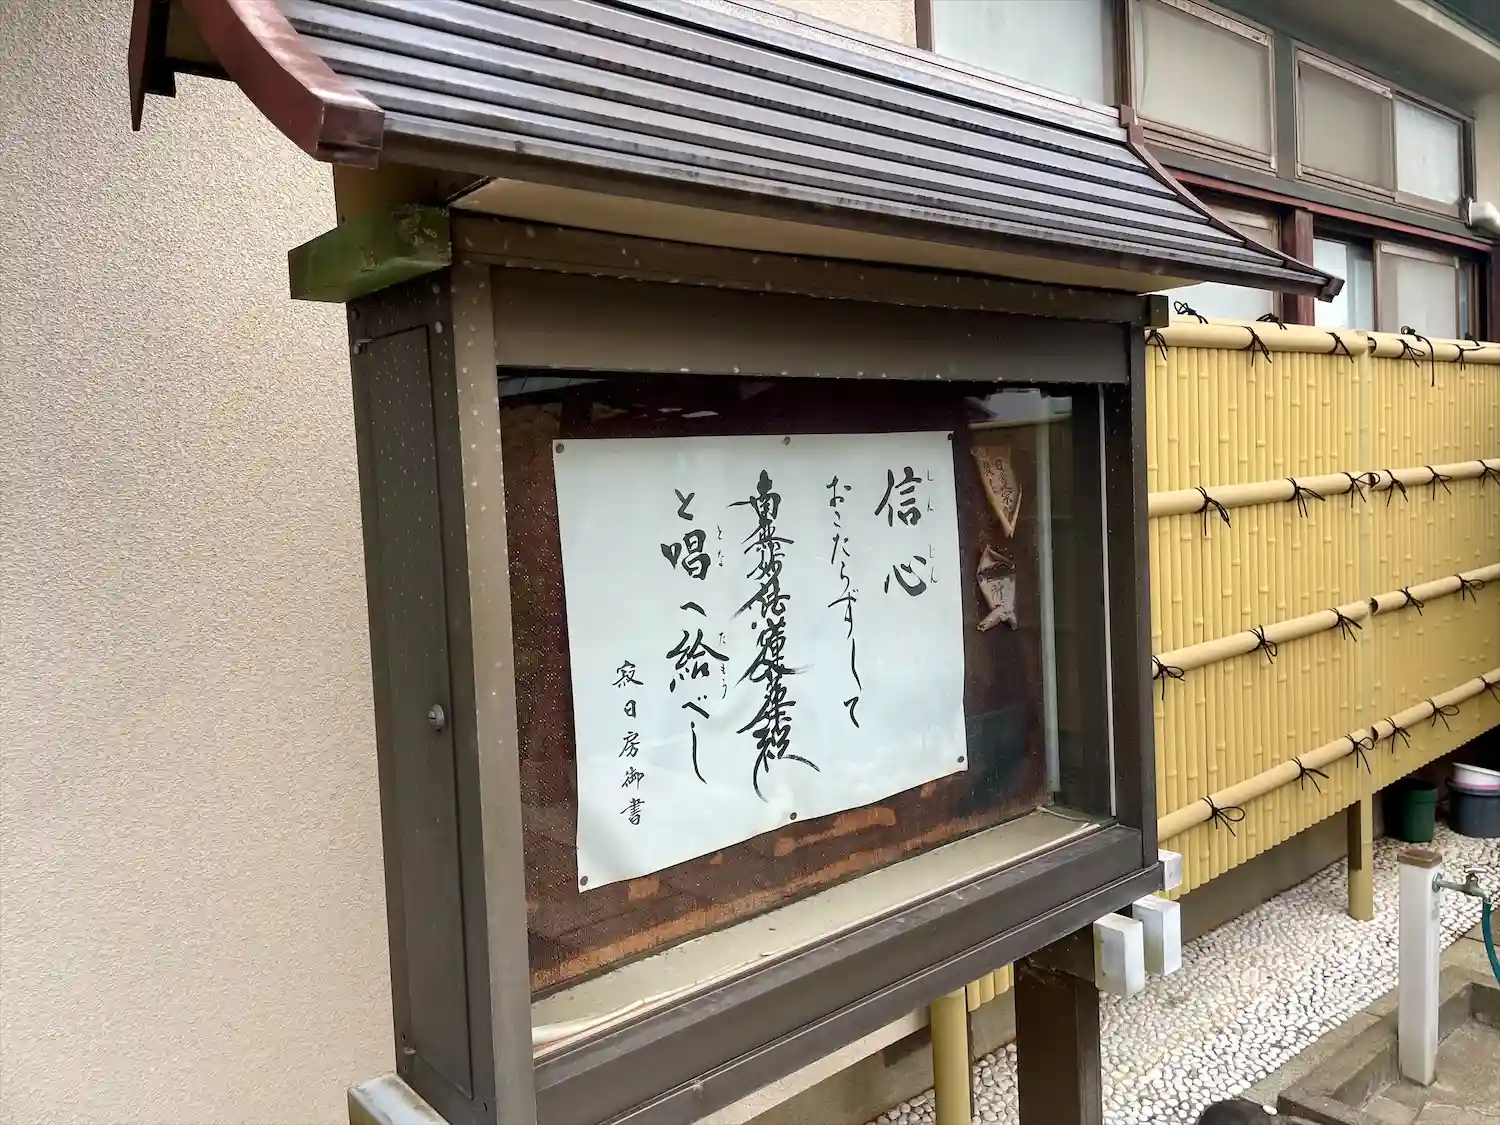 信心
しんじん
おこたらずして
南無妙法蓮華経
と唱へ給べし
とな
たもう
寂日房御書